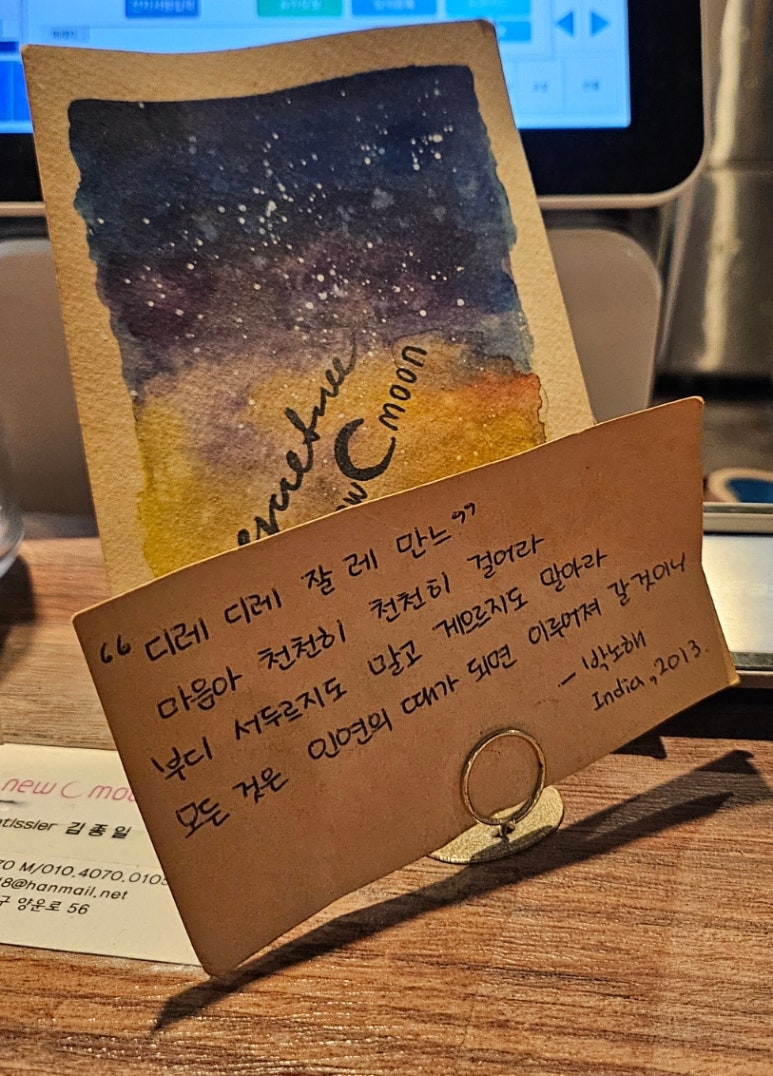 secretree
moon
“ 디레 디레 잘 레 만느 ”
마음아 천천히 천천히 걸어라
부디 서두르지도 말고 게으르지도 말아라
모든 것은 인연의 때가 되면 이루어져 갈 것이니
– 박노해
India, 2013.
new moo
tissier 김종일
70 M/010.4070.010
8@hanmail.net
구 양운로 56